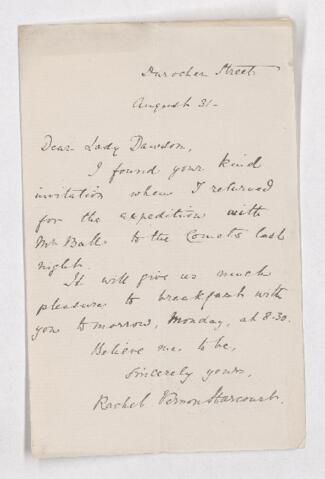 Durocher Street
August 31-
Dear Lady Dawson,
I found your kind
invitation when I returned
for the expedition with
Mr Ball to the Comets last
night.
It will give us much
pleasure to breakfast with
you to morrow, Monday, at 8.30.
Believe me to be,
Sincerely yours,
Rachel Vernon Harcourt.